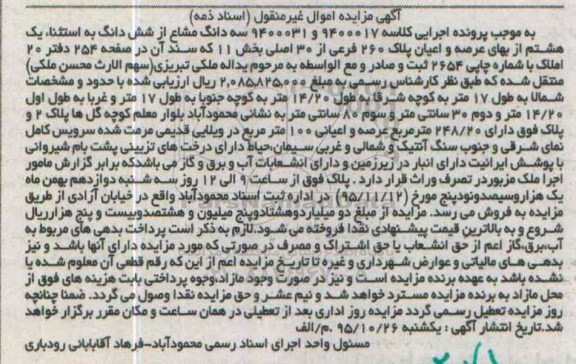 آگهی مزایده اموال غیرمنقول (اسناد ذمه)
به موجب پرونده اجرایی کلاسه ۹۴۰۰۰۱۷ و ۹۴۰۰۰۳۱ سه دانگ مشاع از شش دانگ به استثناء یک
هشتم از بهای عرصه و اعیان پلاک ۲۶۰ فرعی از ۳۰ اصلی بخش ۱۱ که سند آن در صفحه ۲۵۴ دفتر ۲۰
املاک با شماره چاپی ۲۶۵۴ ثبت و صادر و مع الواسطه به مرحوم یداله ملکی تبریزی(سهم الارث محسن ملکی)
منتقل شده که طبق نظر کارشناس رسمی به مبلغ ۲٫۰۸۵٫۸۲۵٫۰۰۰ ریال ارزیابی شده با حدود و مشخصات
شمالا به طول ۱۷ متر به کوچه شرقا به طول ۱۴/۲۰ متر به کوچه جنوبا به طول ۱۷ متر و غربا به طول اول
۱۴/۲۰ متر و دوم ۳۰ سانتی متر و سوم ۸۰ سانتی متر به نشانی محمودآباد بلوار معلم کوچه گل ها پلاک ۲ و
پلاک فوق دارای ۲۴۸/۲۰ مترمربع عرصه و اعیانی ۱۰۰ متر مربع در ویلایی قدیمی مرمت شده سرویس کامل
نمای شرقی و جنوب سنگ آنتیک و شمالی و غربی سیمان،حیاط دارای درخت های تزیینی پشت بام شیروانی
با پوشش ایرانیت دارای انبار در زیرزمین و دارای انشعابات آب و برق و گاز می باشدکه برابر گزارش مامور
اجرا ملک مزبوردر تصرف وراث قرار دارد . پلاک فوق از ساعت ۹ الی ۱۲ روز سه شنبه دوازدهم بهمن ماه
یک هزاروسیصدونودپنج مورخ (۹۵/۱۱/۱۲) در اداره ثبت اسناد محمودآباد واقع در خیابان آزادی از طریق
مزایده به فروش می رسد. مزایده از مبلغ دو میلیاردوهشتادوپنج میلیون و هشتصدوبیست و پنج هزارریال
شروع و به بالاترین قیمت پیشنهادی نقدا فروخته می شود.لازم به ذکر است پرداخت بدهی های مربوط به
آب،برق،گاز اعم از حق انشعاب یا حق اشتراک و مصرف در صورتی که مورد مزایده دارای آنها باشد و نیز
بدهی های مالیاتی و عوارض شهرداری و غیره تا تاریخ مزایده اعم از این که رقم قطعی آن معلوم شده یا
نشده باشد به عهده برنده مزایده است و نیز در صورت وجود مازاد،وجوه پرداختی بابت هزینه های فوق از
محل مازاد به برنده مزایده مسترد خواهد شد و نیم عشر و حق مزایده نقدا وصول می گردد. ضمنا چنانچه
روز مزایده تعطیل رسمی گردد مزایده روز اداری بعد از تعطیلی در همان ساعت و مکان مقرر برگزار خواهد
شد.تاریخ انتشار آگهی : یکشنبه ۹۵/۱۰/۲۶ .م/الف
مسئول واحد اجرای اسناد رسمی محمودآباد-فرهاد آقابابانی رودباری